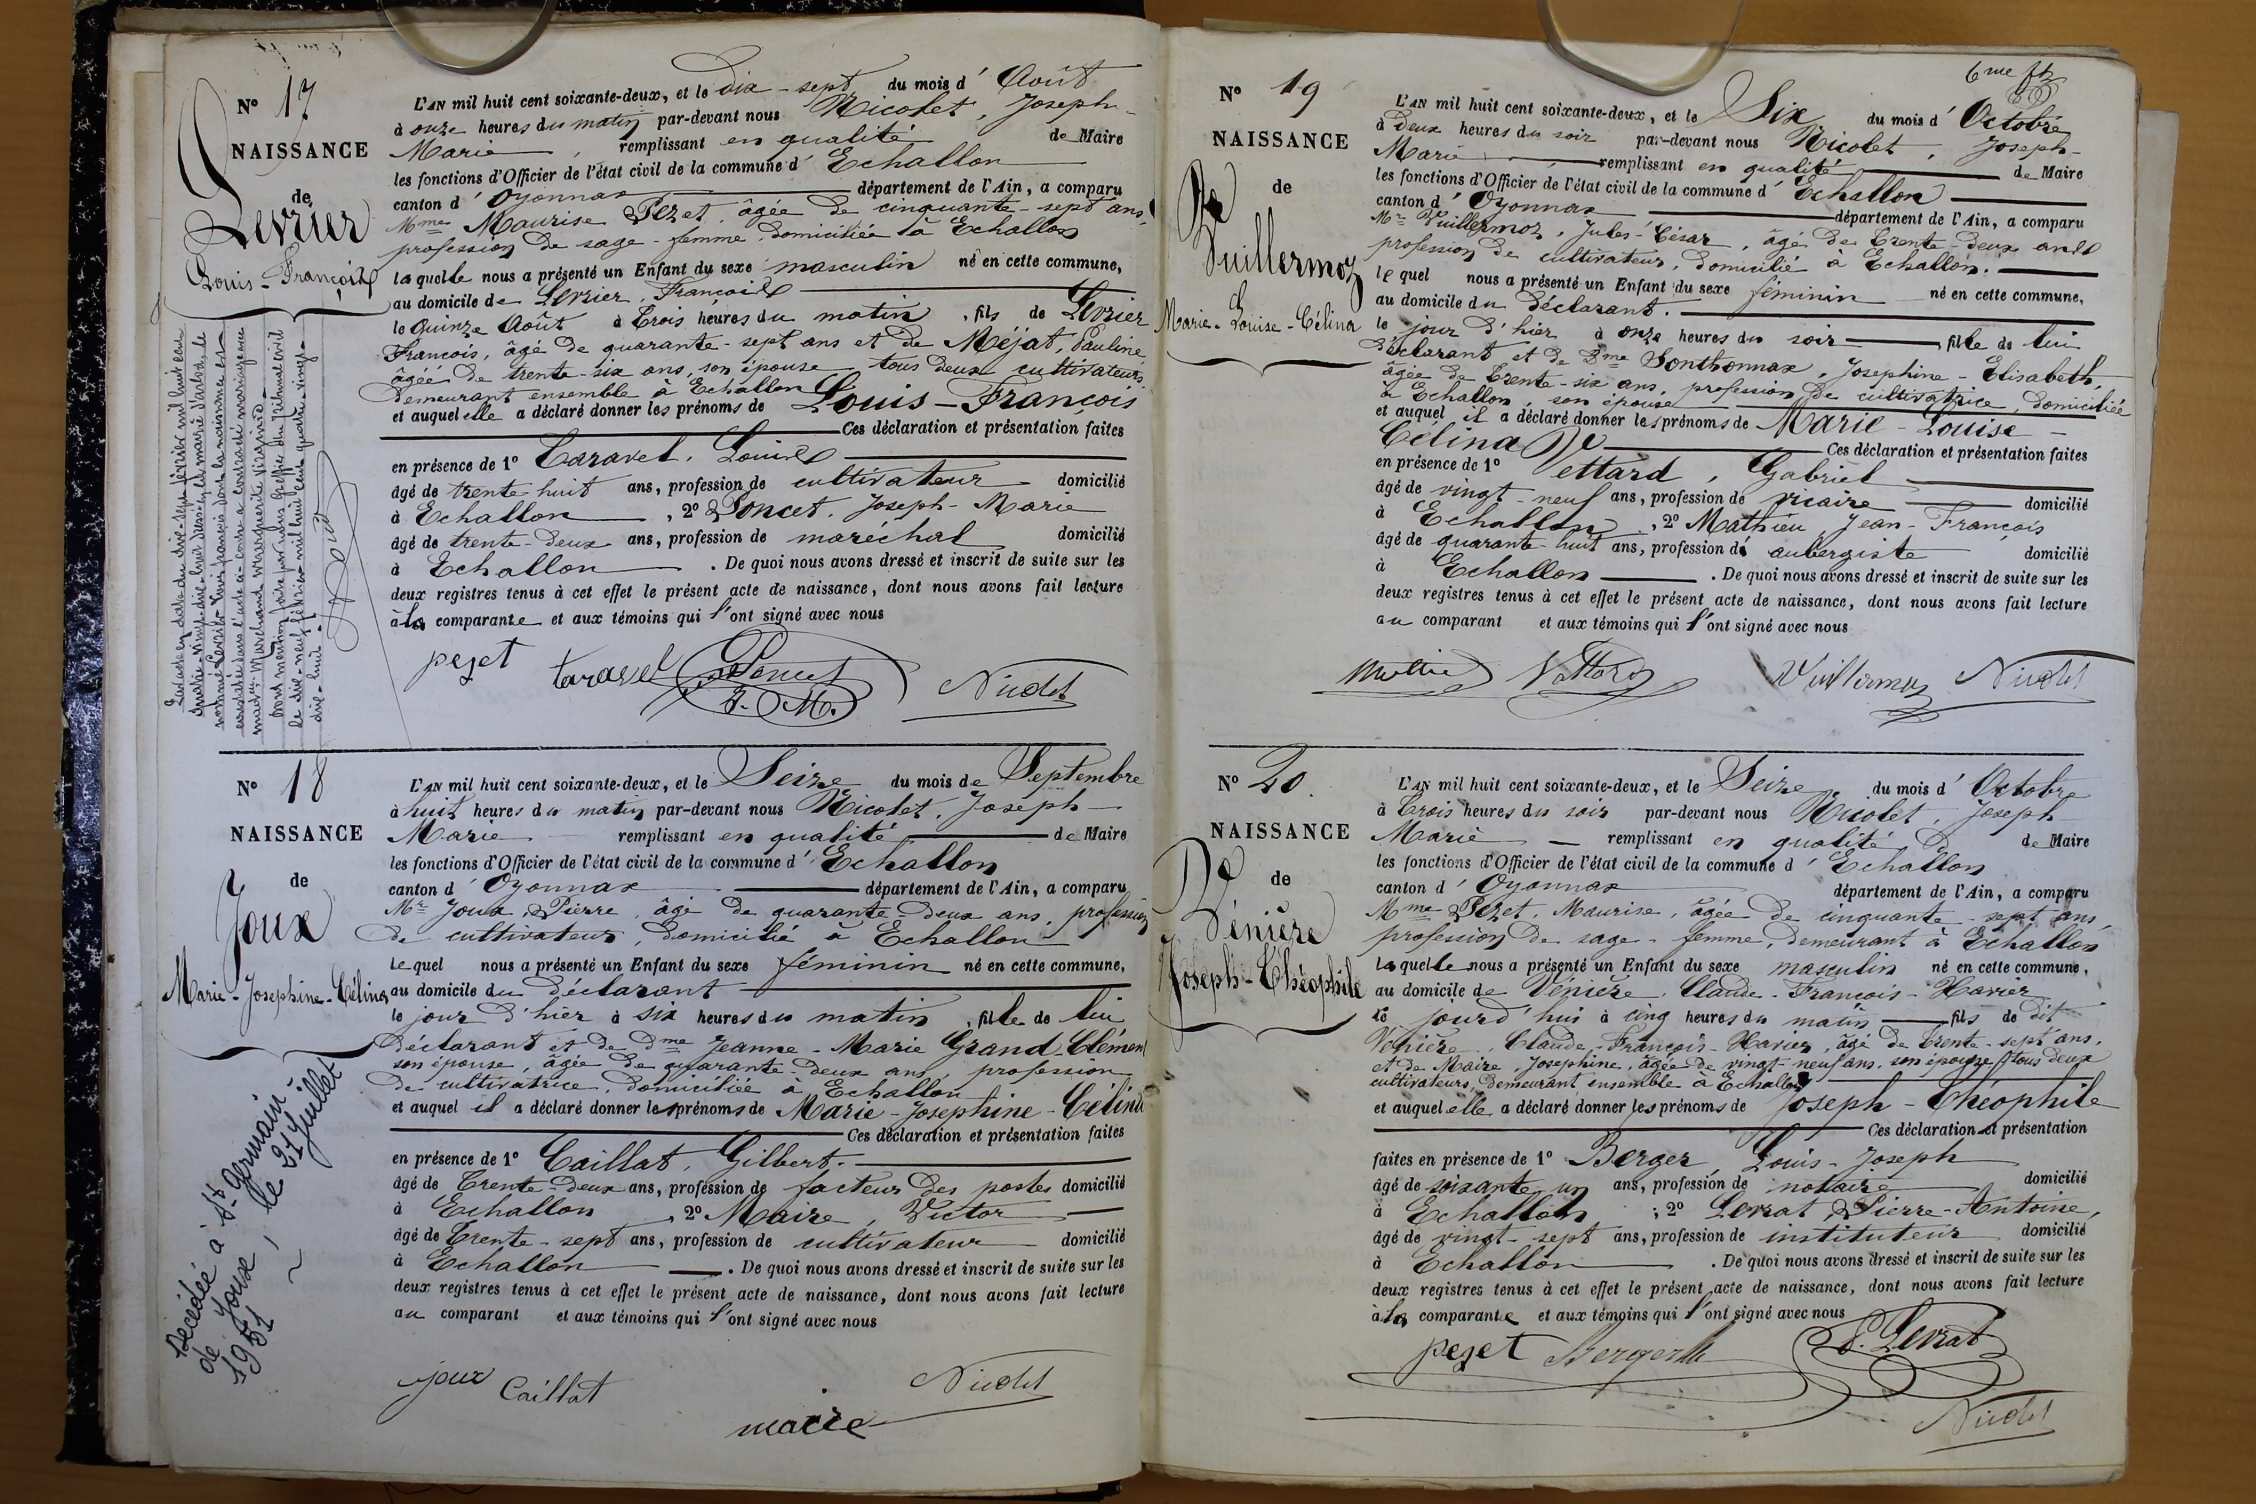 N° 17
NAISSANCE
de
Levrier
Louis-François
L'AN mil huit cent soixante-deux, et le dix-sept du mois d'Août
à onze heures du matin par-devant nous Nicolet, Joseph-
Marie, remplissant en qualité de Maire
les fonctions d'Officier de l'état civil de la commune d'Echallon
canton d'Oyonnax département de l'Ain, a comparu
Mme Maurise Pezet, âgée de cinquante-sept ans,
profession de sage-femme, domiciliée à Echallon
laquelle nous a présenté un Enfant du sexe masculin né en cette commune,
au domicile de Levrier, François
le quinze Août à trois heures du matin, fils de Levrier
François, âgé de quarante-sept ans et de Méjat, Pauline,
âgée de trente-six ans, son épouse tous deux cultivateurs,
demeurant ensemble à Echallon
et auquel elle a déclaré donner les prénoms de Louis-François
Ces déclaration et présentation faites
en présence de 1° Taravel, Louis
âgé de trente huit ans, profession de cultivateur domicilié
à Echallon, 2° Poncet, Joseph-Marie
âgé de trente-deux ans, profession de maréchal domicilié
à Echallon. De quoi nous avons dressé et inscrit de suite sur les
deux registres tenus à cet effet le présent acte de naissance, dont nous avons fait lecture
à la comparante et aux témoins qui l'ont signé avec nous
pezet taravel Poncet J. M. Nicolet
N° 18
NAISSANCE
de
Joux
Marie-Josephine-Célina
Décédée à St Germain
de Joux, le 21 Juillet
1951
L'AN mil huit cent soixante-deux, et le Seize du mois de Septembre
à huit heures du matin par-devant nous Nicolet, Joseph-
Marie remplissant en qualité de Maire
les fonctions d'Officier de l'état civil de la commune d'Echallon
canton d'Oyonnax département de l'Ain, a comparu
Mr Joux, Pierre, âgé de quarante-deux ans, profession
de cultivateur, domicilié à Echallon
lequel nous a présenté un Enfant du sexe féminin né en cette commune,
au domicile du déclarant
le jour d'hier à six heures du matin, fille de lui
déclarant et de Dme Jeanne-Marie Grand-Clément
son épouse, âgée de quarante-deux ans, profession
de cultivatrice, domiciliée à Echallon
et auquel il a déclaré donner les prénoms de Marie-Josephine-Célina
Ces déclaration et présentation faites
en présence de 1° Caillat, Gilbert.
âgé de trente-deux ans, profession de facteur des postes domicilié
à Echallon, 2° Maire, Victor
âgé de trente-sept ans, profession de cultivateur domicilié
à Echallon. De quoi nous avons dressé et inscrit de suite sur les
deux registres tenus à cet effet le présent acte de naissance, dont nous avons fait lecture
au comparant et aux témoins qui l'ont signé avec nous
joux Caillat maire Nicolet
6me ft
N° 19
NAISSANCE
de
Vuillermoz
Marie-Louise-Célina
L'AN mil huit cent soixante-deux, et le Six du mois d'Octobre
à deux heures du soir par-devant nous Nicolet, Joseph-
Marie remplissant en qualité de Maire
les fonctions d'Officier de l'état civil de la commune d'Echallon
canton d'Oyonnax département de l'Ain, a comparu
Mr Vuillermoz, Jules-César, âgé de trente-deux ans
profession de cultivateur, domicilié à Echallon.
lequel nous a présenté un Enfant du sexe féminin né en cette commune,
au domicile du déclarant.
le jour d'hier à onze heures du soir, fille de lui
déclarant et de Dme Ponthonnax, Josephine-Elisabeth,
âgée de trente-six ans, profession de cultivatrice, domiciliée
à Echallon, son épouse
et auquel il a déclaré donner les prénoms de Marie-Louise-
Célina Ces déclaration et présentation faites
en présence de 1° Vettard, Gabriel
âgé de vingt-neuf ans, profession de vicaire domicilié
à Echallon, 2° Mathieu, Jean-François
âgé de quarante-huit ans, profession d'aubergiste domicilié
à Echallon. De quoi nous avons dressé et inscrit de suite sur les
deux registres tenus à cet effet le présent acte de naissance, dont nous avons fait lecture
au comparant et aux témoins qui l'ont signé avec nous
Vettard Vuillermoz Nicolet
N° 20.
NAISSANCE
de
Vénière
Joseph-Théophile
L'AN mil huit cent soixante-deux, et le Seize du mois d'Octobre
à trois heures du soir par-devant nous Nicolet, Joseph
Marie remplissant en qualité de Maire
les fonctions d'Officier de l'état civil de la commune d'Echallon
canton d'Oyonnax département de l'Ain, a comparu
Mme Pezet, Maurise, âgée de cinquante-sept ans,
profession de sage-femme, demeurant à Echallon
laquelle nous a présenté un Enfant du sexe masculin né en cette commune,
au domicile de Vénière, Claude-François-Xavier
le jourd'hui à cinq heures du matin fils de dit
Vénière, Claude-François-Xavier, âgé de trente-sept ans,
et de Maire, Josephine, âgée de vingt-neuf ans, son épouse, tous deux
cultivateurs, demeurant ensemble à Echallon
et auquel elle a déclaré donner les prénoms de Joseph-Théophile
Ces déclaration et présentation
faites en présence de 1° Berger, Louis-Joseph
âgé de soixante un ans, profession de notaire domicilié
à Echallon; 2° Levrat, Pierre-Antoine,
âgé de vingt-sept ans, profession de instituteur domicilié
à Echallon. De quoi nous avons dressé et inscrit de suite sur les
deux registres tenus à cet effet le présent acte de naissance, dont nous avons fait lecture
à la comparante et aux témoins qui l'ont signé avec nous
pezet Berger P. Levrat
Nicolet